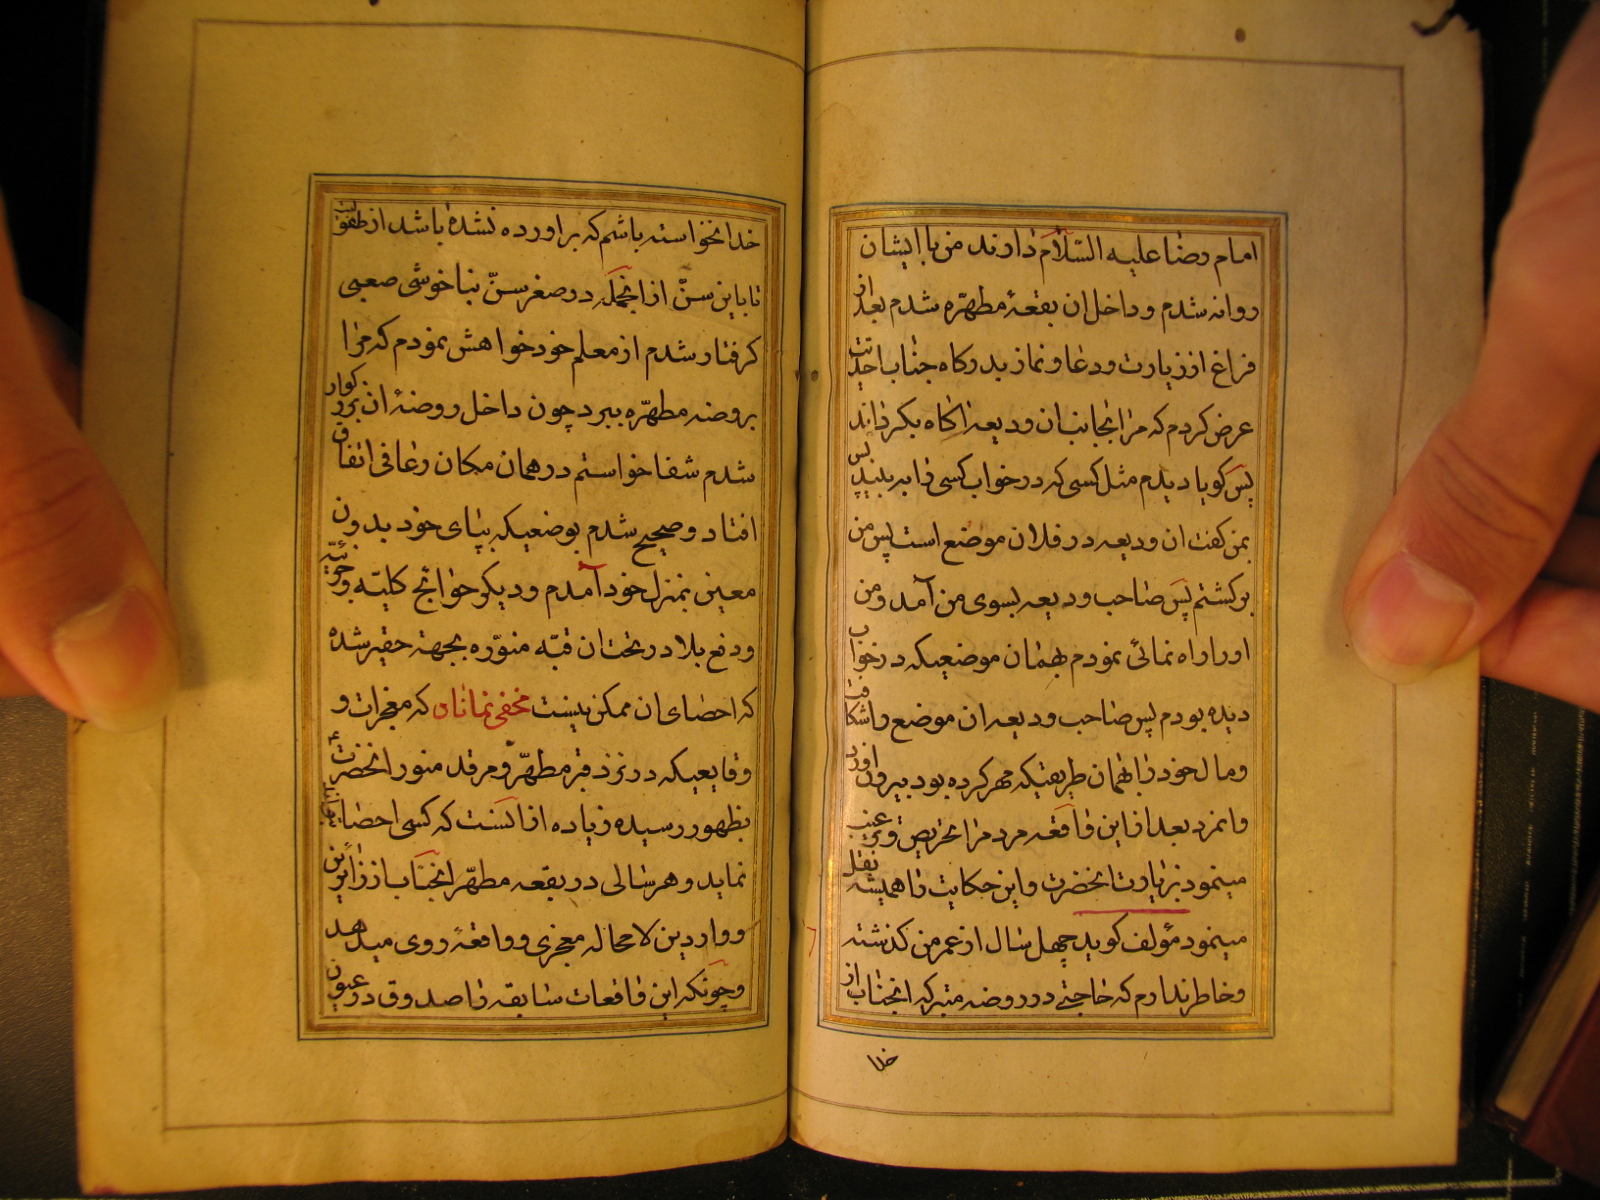 امام رضا علیه السّلام دارند من با ایشان
روانه شدم و داخل ان بقعهٔ مطهّره شدم بعد از
فراغ از زیارت و دعا و نماز بدرکاه جناب احدیّت
عرض کردم که مرا بجانب ان ودیعه اکاه بکرداند
پس کویا دیدم مثل کسی که در خواب کسی را به بیند پس
بمن کفت ان ودیعه در فلان موضع است پس من
برکشتم پس صاحب ودیعه بسوی من آمد و من
او را راه نمائی نمودم بهمان موضعیکه در خواب
دیده بودم پس صاحب ودیعه ان موضع را شکافت
و مال خود را بهمان طریقتیکه مهر کرده بود بیرون اورد
و انمرد بعد از این واقعه مردم را تحریص و ترغیب
مینمود بزیارت انحضرت و این حکایت را همیشه نقل
مینمود مؤلف کوید چهل سال از عمر من کذشته
و خاطر ندارم که حاجتی در روضه متبرکه انجناب از
خدا
خدا نخواسته باشم که براورده نشده باشد از طفولیت
تا باین سنّ از انجمله در صغر سنّ بناخوشی صعبی
کرفتار شدم از معلم خود خواهش نمودم که مرا
بروضه مطهّره ببرد چون داخل روضهٔ ان بزرکوار
شدم شفا خواستم در همان مکان رعافی اتفاق
افتاد و صحیح شدم بوضعیکه بپای خود بدون
معین بمنزل خود آمدم و دیکر حوائج کلیّه و جزئیّه
و دفع بلا در تحت ان قبّه منوّره بجهته حقیر شده
که احصای ان ممکن نیست مخفی نماناد که معجزات و
وقایعیکه در نزد قبر مطهّر و مرقد منور انحضرت ع
بظهور رسیده زیاده از آنست که کسی احصا
نماید و هر سالی در بقعه مطهّر انجناب از زائرین
و واردین لامحاله معجزی و واقعهٔ روی میدهد
و چونکه این واقعات سابقه را صدوق در عیون